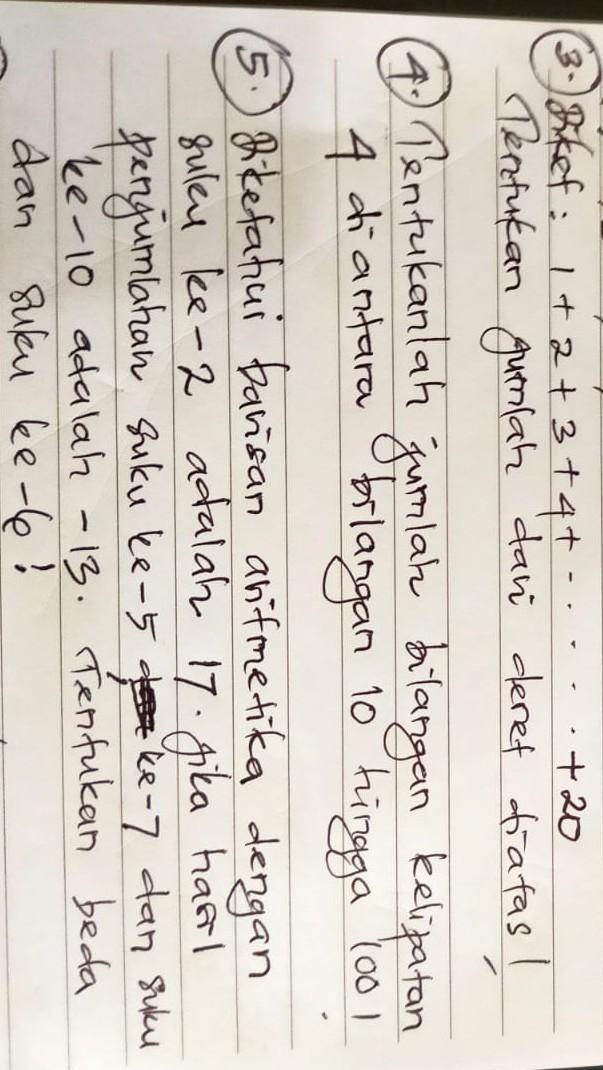 3. Diket : 1 + 2 + 3 + 4 + . . . . . + 20
Tentukan jumlah dari deret diatas!
4. Tentukanlah jumlah bilangan kelipatan
4 diantara bilangan 10 hingga 100!
5. Diketahui barisan aritmetika dengan
suku ke-2 adalah 17. jika hasil
penjumlahan suku ke-5, ke-7 dan suku
ke-10 adalah -13. Tentukan beda
dan suku ke-6!